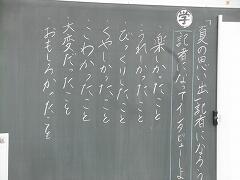 「夏の思い出」記者になろう
学 記者になってインタビューしよ
・楽しかったこと
・うれしかったこと
・びっくりしたこと
・くやしかったこと
・こわかったこと
・大変だったこと
・おもしろかったこと